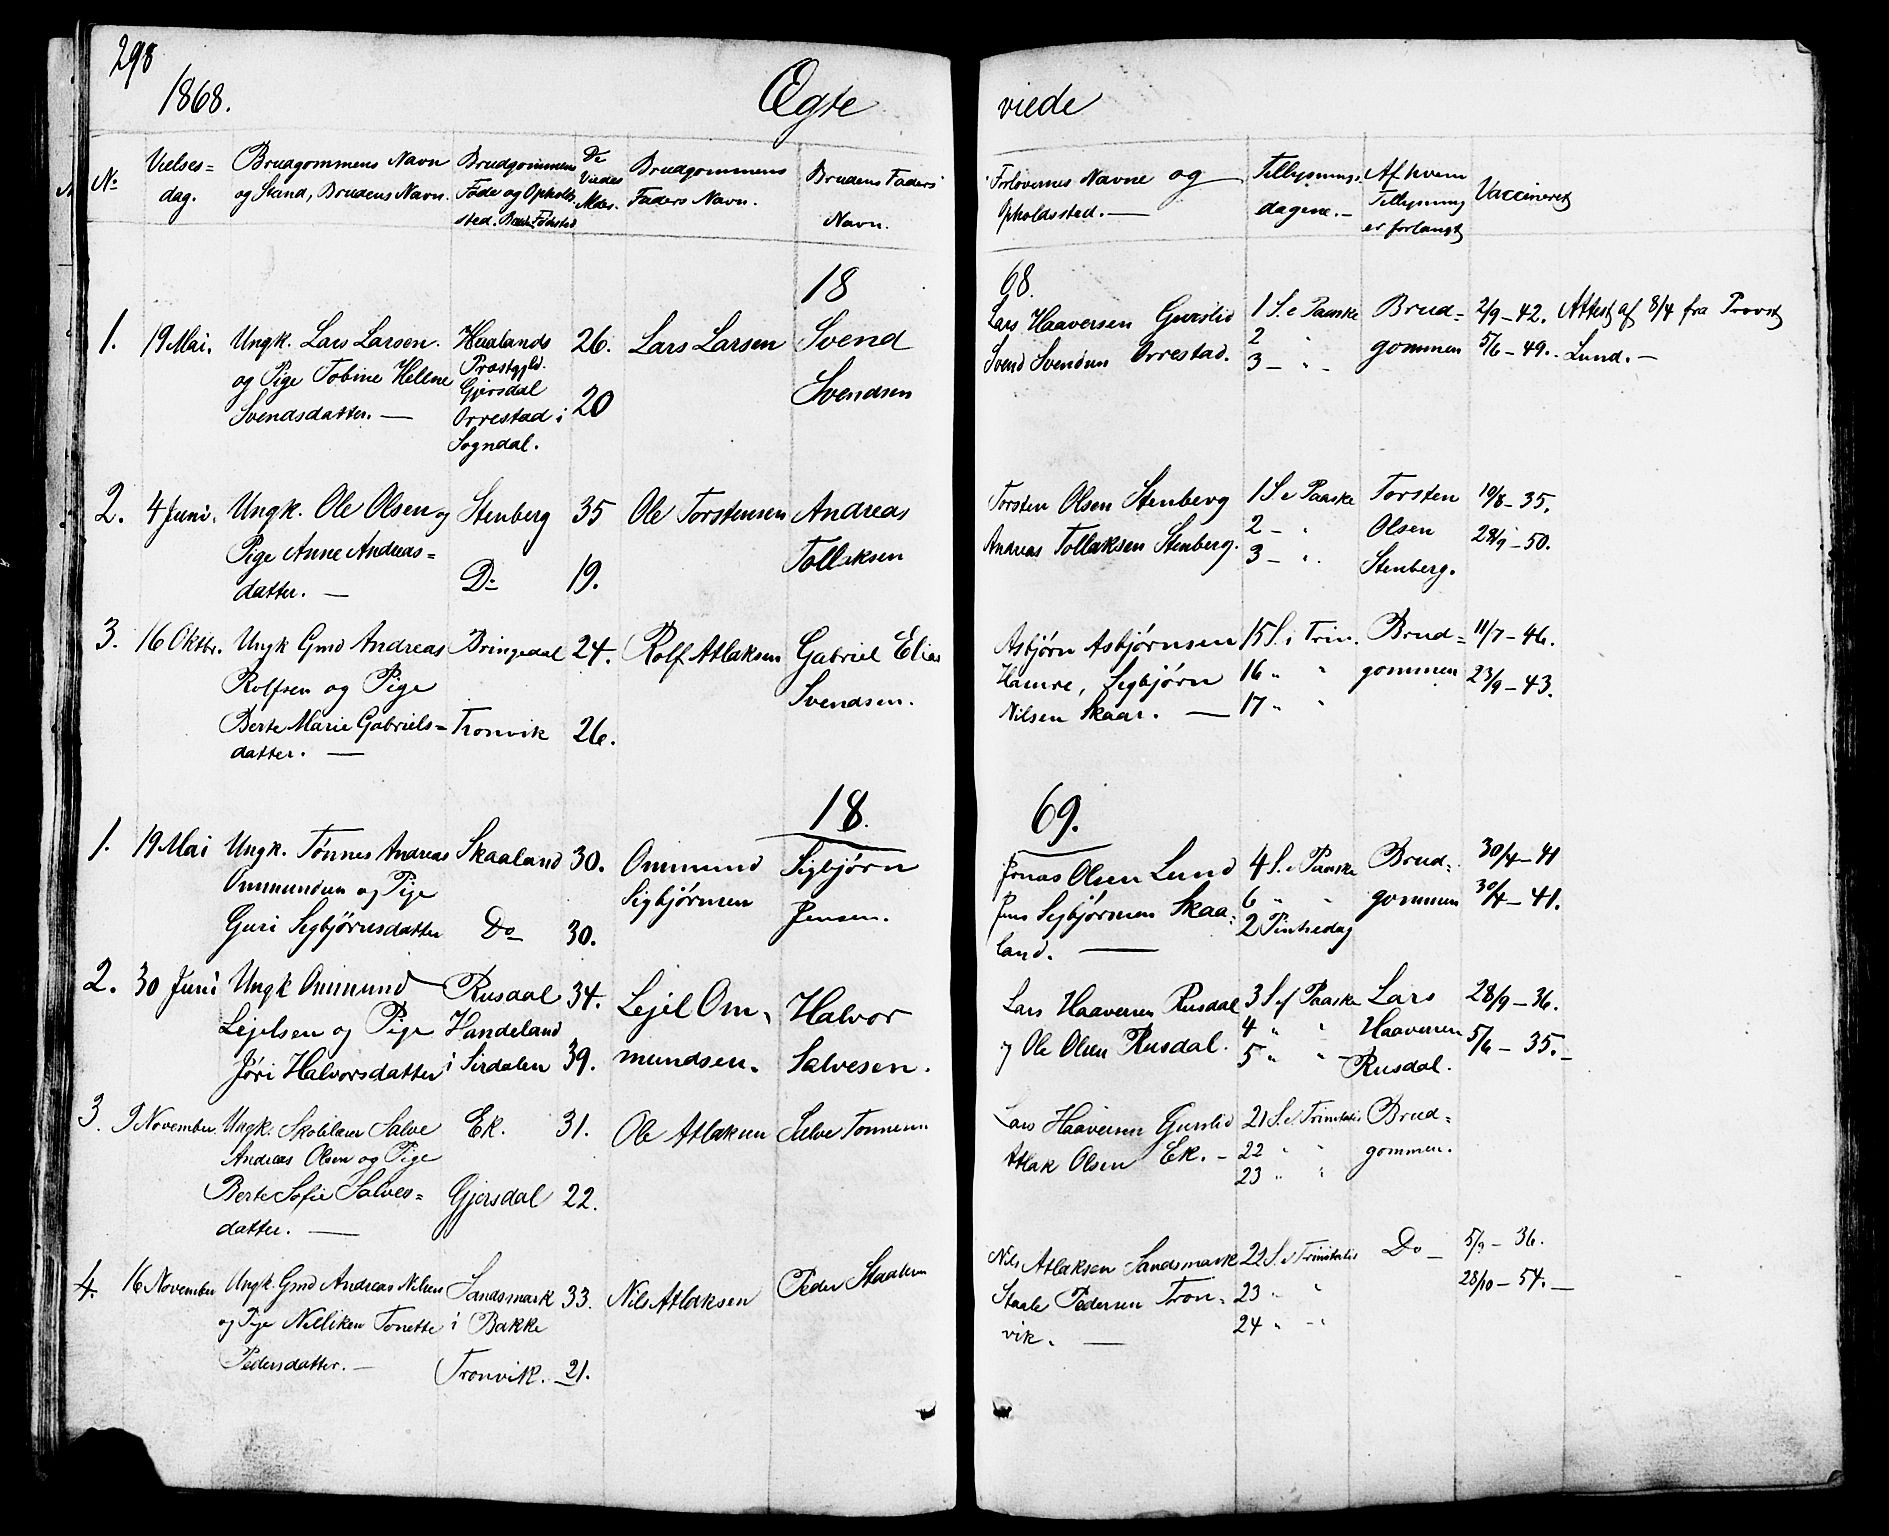 298
1868. Ægte viede
No Vielses=dag. Brudgommens Navn og Stand, Brudens Navn. Brudgommens Føde og Opholdssted. Brudens Fødested De Viedes Alder. Brudgommens Faders Navn. Brudens Faders Navn. Forlovernes Navne og Opholdssted. — Tillysnings-dagene. — Af hvem Tillysning er forlangt Vaccineret
1868.
1. 19 Mai. Ungk. Lars Larsen. Haalands 26. Lars Larsen Svend Lars Haaversen Gursli 1 S. e Paaske Brud= 2/9 – 42. Attest af 8/4 fra Provst
og Pige Tobine Helene Præstgjld. Svendsen Svend Svendsen Orrestad. 2 " gommen 5/6 – 49. Lund. —
Svendsdatter. — Gjersdal 20 3 — " —
Orrestad i
Sogndal.
2. 4 Juni. Ungk. Ole Olsen og Stenberg 35 Ole Torstensen Andreas Torsten Olsen Stenberg 1 S e Paaske Torsten 19/8 – 35.
Pige Anne Andreas= Tollaksen Andreas Tollaksen Stenberg. 2 — " Olsen 28/9 – 50.
datter. — Do 19. 3 — " Stenberg.
3. 16 Oktbr. Ungk Gmd Andreas Bringedal 24. Rolf Atlaksen Gabriel Elias Asbjørn Asbjørnsen 15 S. e Trin. Brud= 11/7 – 46.
Rolfsen og Pige Svendsen. Hamre, Sigbjørn 16 " " gommen 23/9 – 43.
Berte Marie Gabriels= Tronvik 26. Nilsen Skaar. — 17 " "
datter. —
1869.
1. 19 Mai Ungk. Tønnes Andreas Skaaland 30. Ommund Sigbjørn Jonas Olsen Lund 4 S. e Paaske Brud= 30/4 – 41
Ommundsen og Pige Sigbjørnsen Jensen. Jens Sigbjørnsen Skaa= 6 " " gommen 30/4 – 41.
Guri Sigbjørnsdatter Do 30. land. — 2 Pintsedag
2. 30 Juni Ungk Ommund Rusdal 34. Lejel Om= Halvor Lars Haaversen Rusdal 3 S. ef Paaske Lars 28/9 – 36.
Lejelsen og Pige Handeland mundsen. Salvesen. og Ole Olsen Rusdal. 4 " " Haaversen 5/6 – 35. –
Jøri Halvorsdatter i Sirdalen 39. 5 " " Rusdal.
3. 9 November. Ungk. Skolelærer Salve Ek. 31. Ole Atlaksen Salve Tønnesen Lars Haaversen Gursli 21 S. e. Trinitatis Brud=
Andreas Olsen og Pige Atlak Olsen Ek. — 22 " " gommen.
Berte Sofie Salves= Gjersdal 22. 23 " "
datter. —
4. 16 November Ungk. Gmd Andreas Nilsen Sandsmark 33. Nils Atlaksen Peder Staalesen Nils Atlaksen Sandsmark 22 S. e Trinitatis Do — 5/9 – 36.
og Pige Nilliken Tonette i Bakke Staale Pedersen Tron= 23 " " 28/10 – 54. —
Pedersdatter. — Tronvik. 21. vik. — 24 " "